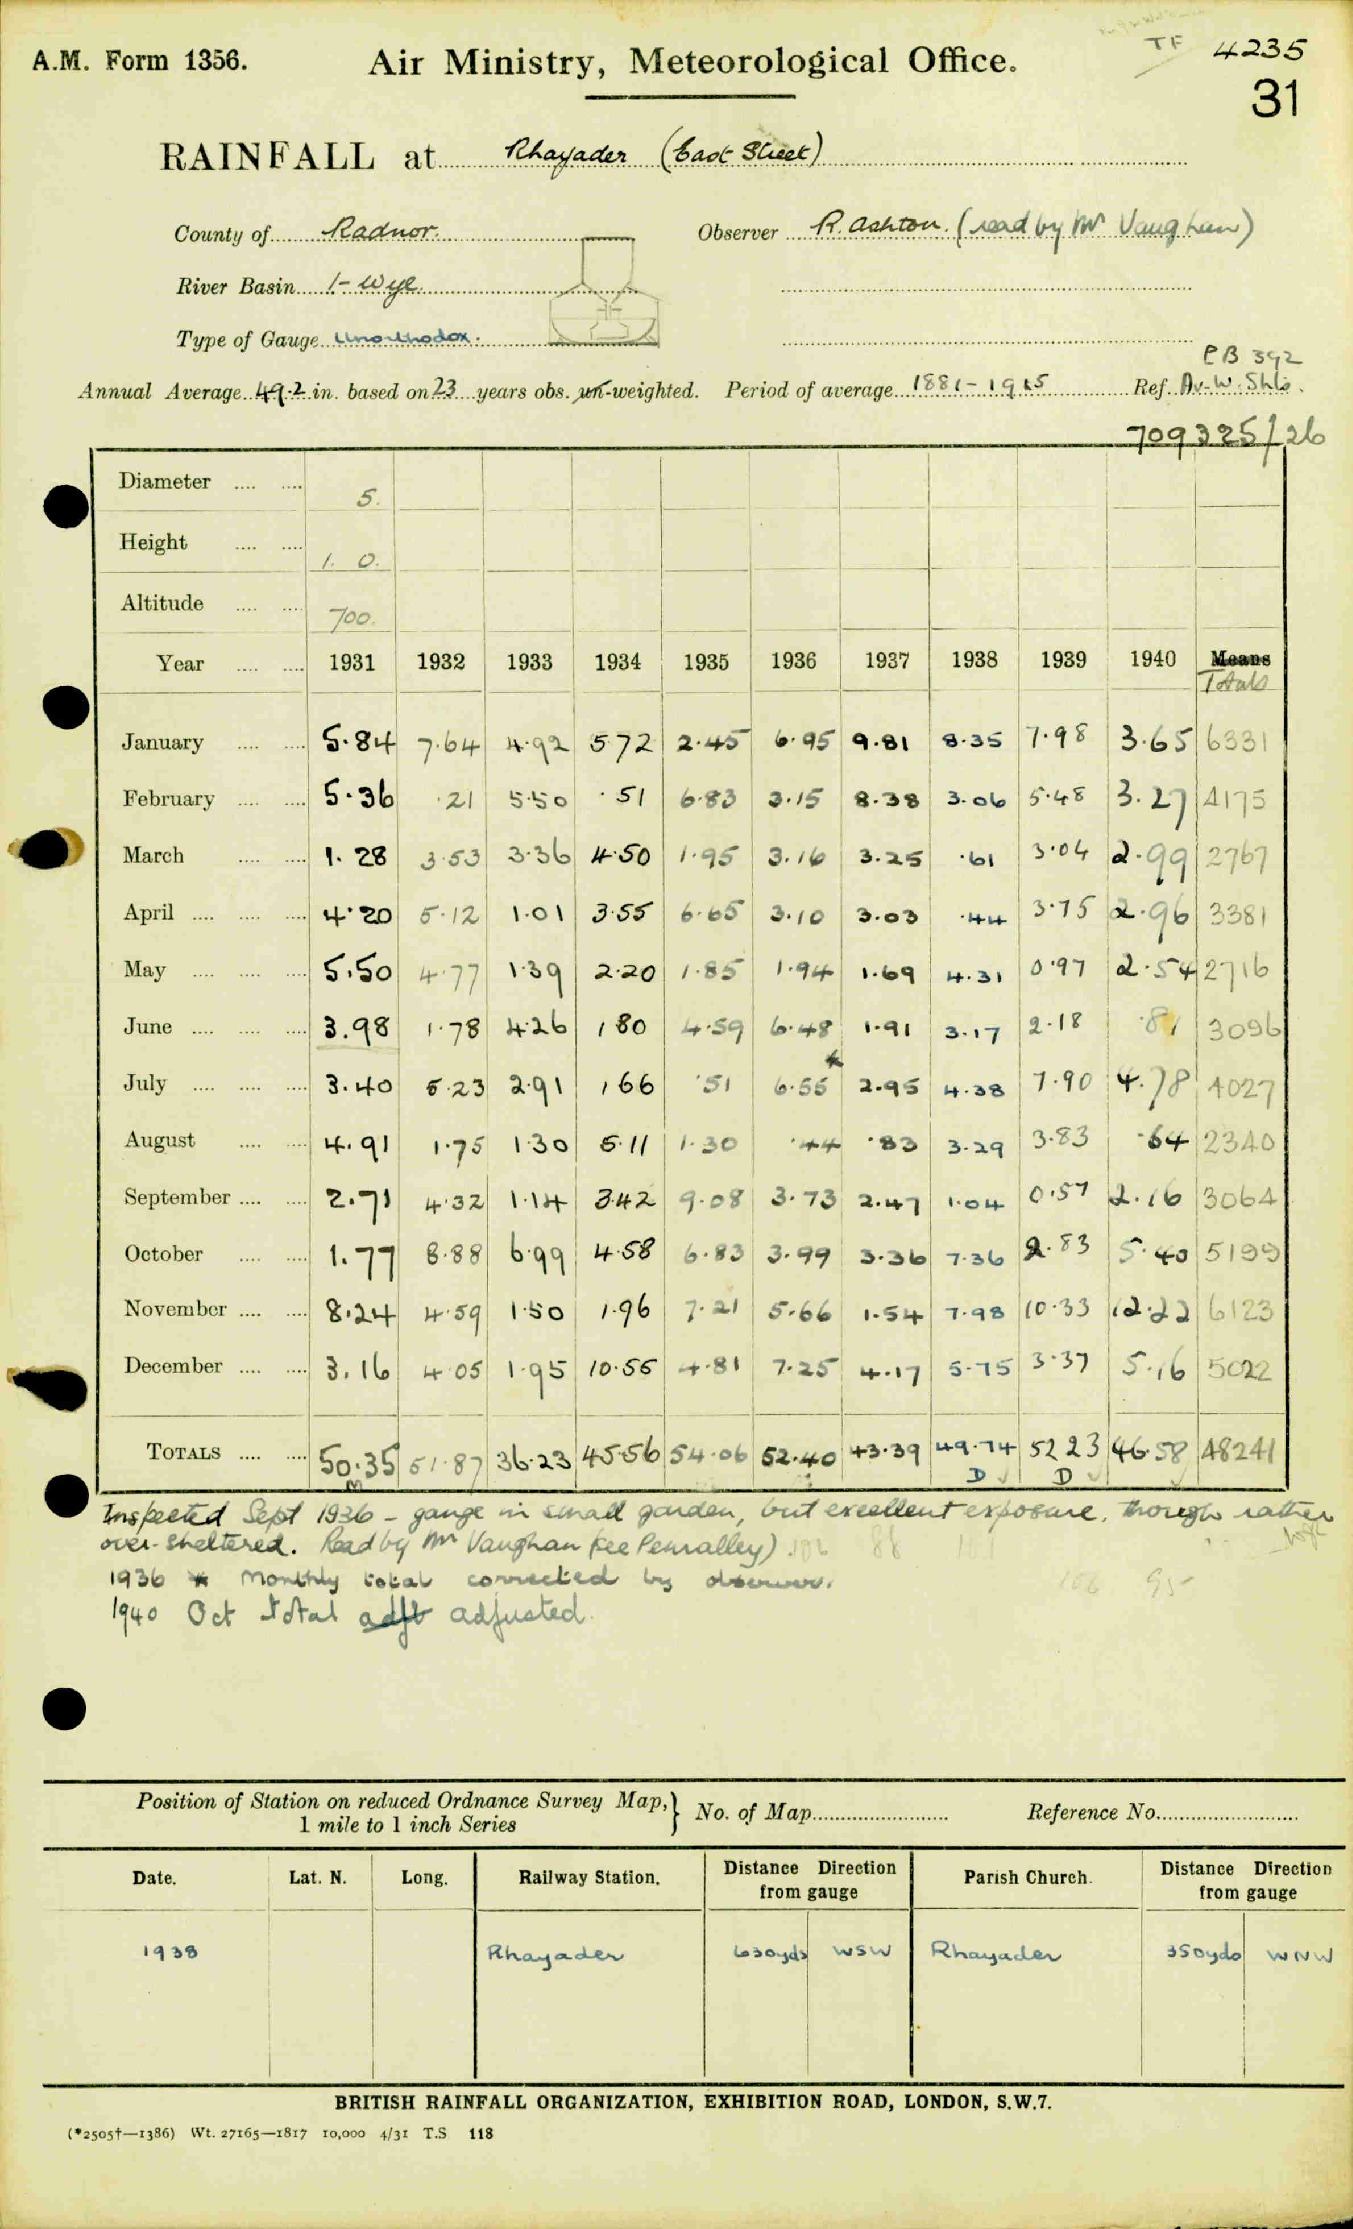 TF 4235
A.M. Form 1356. Air Ministry, Meteorological Office. 31
RAINFALL at Rhayader (East Street)
County of Radnor. Observer R. Ashton. (read by Mr Vaughan)
River Basin 1- Wye
Type of Gauge Unorthodox.
PB 392
Annual Average 49.2 in. based on 23 years obs. un-weighted. Period of average 1881-1915 Ref. Av. W. Shls.
709325/26
Diameter .... .... 5.
Height .... .... 1. 0.
Altitude .... .... 700.
Year .... .... 1931 1932 1933 1934 1935 1936 1937 1938 1939 1940 Means
Totals
January .... .... 5.84 7.64 4.92 5.72 2.45 6.95 9.81 8.35 7.98 3.65 6331
February .... .... 5.36 .21 5.50 .51 6.83 3.15 8.38 3.06 5.48 3.27 4175
March .... .... 1.28 3.53 3.36 4.50 1.95 3.16 3.25 .61 3.04 2.99 2767
April .... .... .... 4.20 5.12 1.01 3.55 6.65 3.10 3.03 .44 3.75 2.96 3381
May .... .... .... 5.50 4.77 1.39 2.20 1.85 1.94 1.69 4.31 0.97 2.54 2716
June .... .... .... 3.98 1.78 4.26 1.80 4.59 6.48 1.91 3.17 2.18 .81 3096
July .... .... .... 3.40 5.23 2.91 1.66 .51 6.55* 2.95 4.38 7.90 4.78 4027
August .... .... 4.91 1.75 1.30 5.11 1.30 .44 .83 3.29 3.83 .64 2340
September .... .... 2.71 4.32 1.14 3.42 9.08 3.73 2.47 1.04 0.57 2.16 3064
October .... .... 1.77 8.88 6.99 4.58 6.83 3.99 3.36 7.36 2.83 5.40 5199
November .... .... 8.24 4.59 1.50 1.96 7.21 5.66 1.54 7.98 10.33 12.22 6123
December .... .... 3.16 4.05 1.95 10.55 4.81 7.25 4.17 5.75 3.37 5.16 5022
TOTALS .... .... 50.35 51.87 36.23 45.56 54.06 52.40 43.39 49.74 52.23 46.58 48241
m D ✓ D ✓ ✓
Inspected Sept 1936 - gauge in small garden, but excellent exposure, though rather
over-sheltered. Read by Mr Vaughan (see Penralley)
1936 * Monthly total corrected by observer.
1940 Oct total adjt adjusted.
Position of Station on reduced Ordnance Survey Map, } No. of Map Reference No.
1 mile to 1 inch Series
Date. Lat. N. Long. Railway Station. Distance Direction from gauge Parish Church. Distance Direction from gauge
1938 Rhayader 630yds WSW Rhayader 350yds WNW
BRITISH RAINFALL ORGANIZATION, EXHIBITION ROAD, LONDON, S.W.7.
(*2505†—1386) Wt. 27165—1817 10,000 4/31 T.S 118